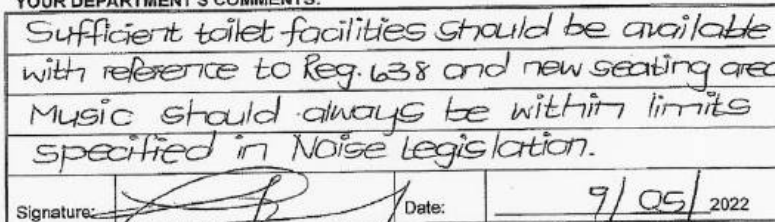 YOUR DEPARTMENT'S COMMENTS:
Sufficient toilet facilities should be available
with reference to Reg. 638 and new seating area
Music should always be within limits
specified in Noise Legislation.
Signature: Date: 9/05/2022